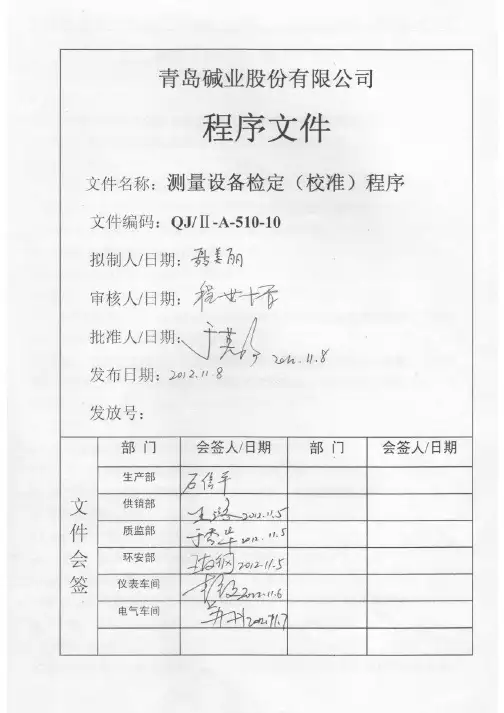 青岛碱业股份有限公司
程序文件
文件名称：测量设备检定（校准）程序
文件编码：QJ/Ⅱ-A-510-10
拟制人/日期：
审核人/日期：
批准人/日期： 2012.11.8
发布日期：2012.11.8
发放号：
文件会签
部 门 会签人/日期 部 门 会签人/日期
生产部 石信平
供销部 2012.11.5
质监部 2012.11.5
环安部 2012.11.5
仪表车间 2012.11.6
电气车间 2012.11.7